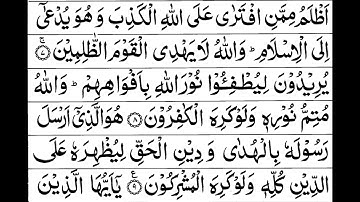 اَظْلَمُ مِمَّنِ افْتَرٰى عَلَى اللّٰهِ الْكَذِبَ وَ هُوَ يُدْعٰۤى
اِلَى الْاِسْلَامِ ؕ وَاللّٰهُ لَا يَهْدِى الْقَوْمَ الظّٰلِمِيْنَ ۚ ۷
يُرِيْدُوْنَ لِيُطْفِـُٔوْا نُوْرَ اللّٰهِ بِاَفْوَاهِهِمْ ؕ وَاللّٰهُ
مُتِمُّ نُوْرِهٖ وَلَوْ كَرِهَ الْكٰفِرُوْنَ ۸ هُوَ الَّذِىْۤ اَرْسَلَ
رَسُوْلَهٗ بِالْهُدٰى وَ دِيْنِ الْحَقِّ لِيُظْهِرَهٗ عَلَى
الدِّيْنِ كُلِّهٖ وَلَوْ كَرِهَ الْمُشْرِكُوْنَ ۹ ع يٰۤاَيُّهَا الَّذِيْنَ